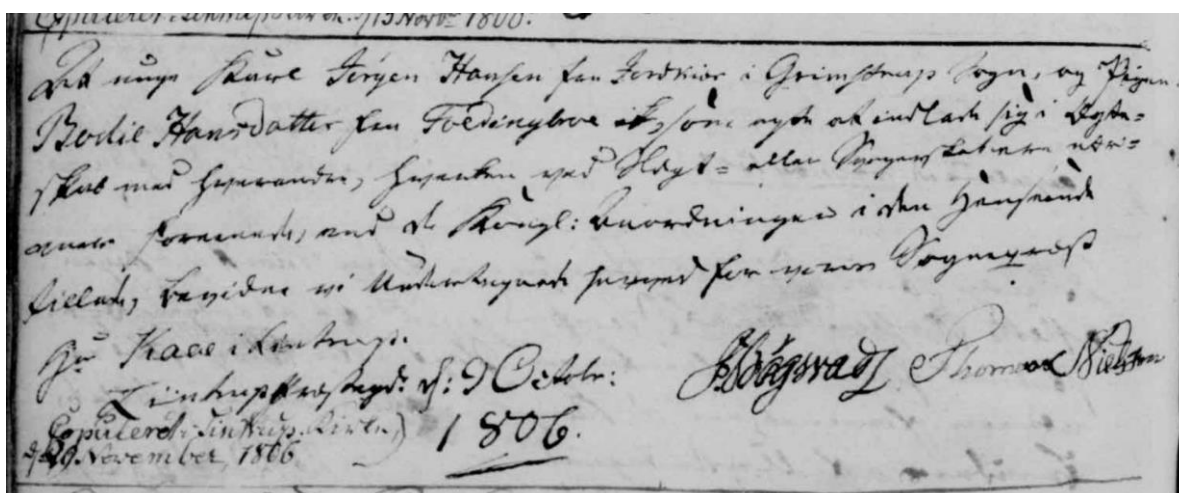 Copuleret i Lintrup Kirke d/ 15 Novbr 1806.
Det unge Karl Jørgen Hansen fra Jordkiær i Grimstrup Sogn, og Pigen
Bodil Hansdatter fra Foldingbroe som agte at indlade sig i Ægte-
skab med hverandre, hverken ved Slægt- eller Svogerskab ere nær-
mere forenede, end de Kongl: Anordninger i den Henseende
tillade, bevidne vi Undertegnede herved for vores Sognepræst
Hr. i Lintrup.
Lintrup Præstegrd. d: 9 Octobr:
1806.
Høgsvad Thomas Nielsen
Copuleret i Lintrup Kirke,
d/ 29 November, 1806